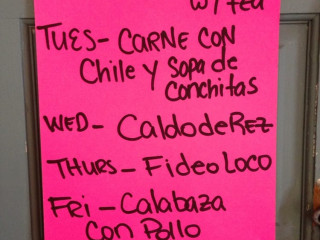 w/ tea
TUES- CARNE CON
Chile y Sopa de
Conchitas
WED- CaldodeRez
THURS- Fideo Loco
FRI- Calabaza
Con Pollo